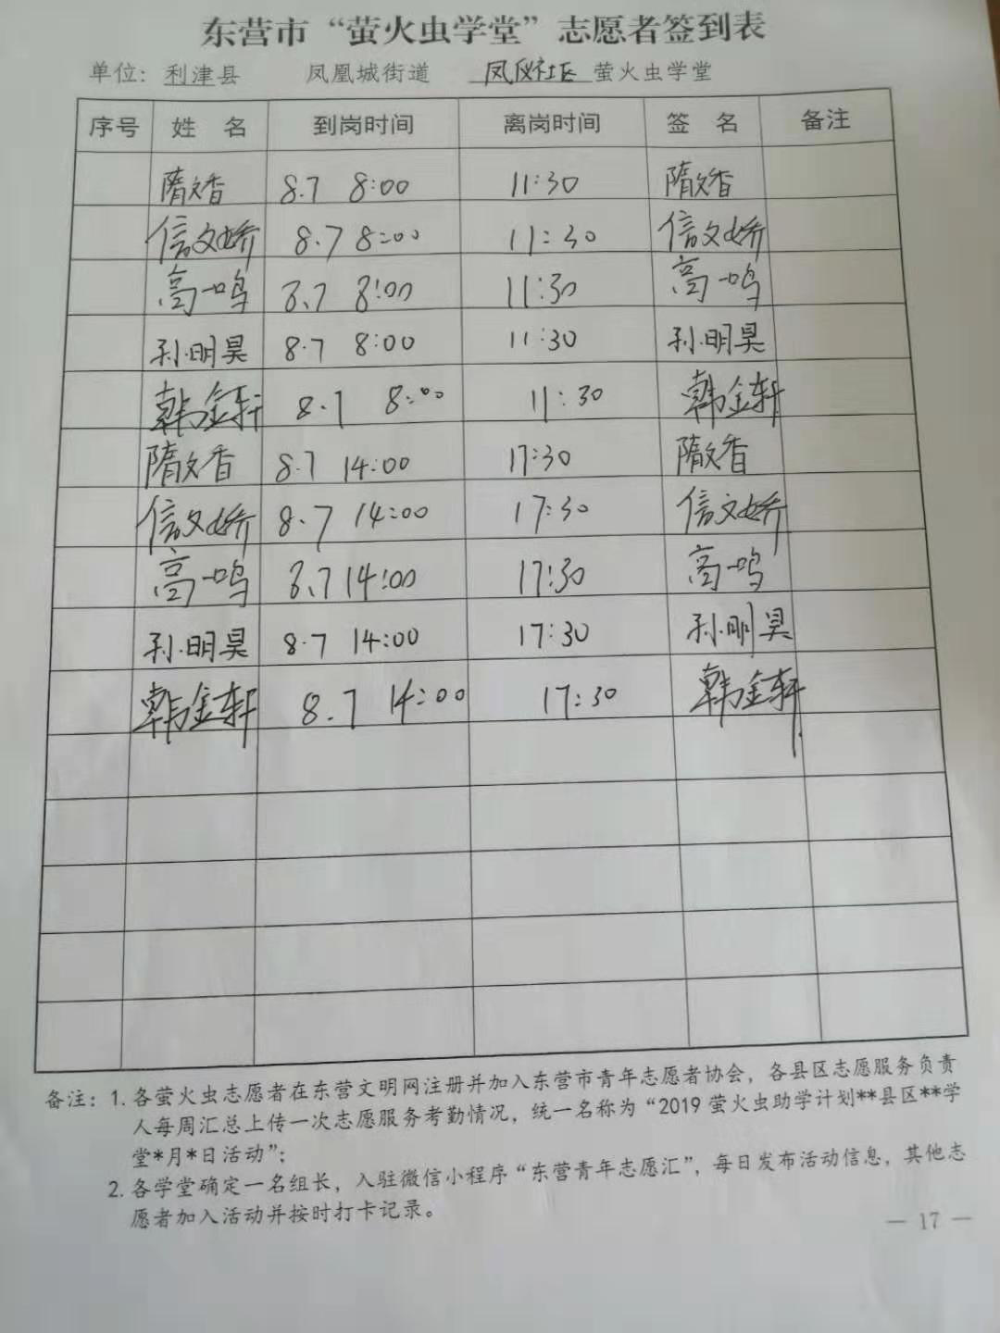 东营市“萤火虫学堂”志愿者签到表
单位：利津县 凤凰城街道 凤仪社区 萤火虫学堂
序号 姓 名 到岗时间 离岗时间 签 名 备注
隋文香 8.7 8:00 11:30 隋文香
信文娇 8.7 8:00 11:30 信文娇
高一鸣 8.7 8:00 11:30 高一鸣
孙明昊 8.7 8:00 11:30 孙明昊
韩金轩 8.7 8:00 11:30 韩金轩
隋文香 8.7 14:00 17:30 隋文香
信文娇 8.7 14:00 17:30 信文娇
高一鸣 8.7 14:00 17:30 高一鸣
孙明昊 8.7 14:00 17:30 孙明昊
韩金轩 8.7 14:00 17:30 韩金轩
备注：1. 各萤火虫志愿者在东营文明网注册并加入东营市青年志愿者协会，各县区志愿服务负责
人每周汇总上传一次志愿服务考勤情况，统一名称为“2019 萤火虫助学计划**县区**学
堂*月*日活动”；
2. 各学堂确定一名组长，入驻微信小程序“东营青年志愿汇”，每日发布活动信息，其他志
愿者加入活动并按时打卡记录。
— 17 —